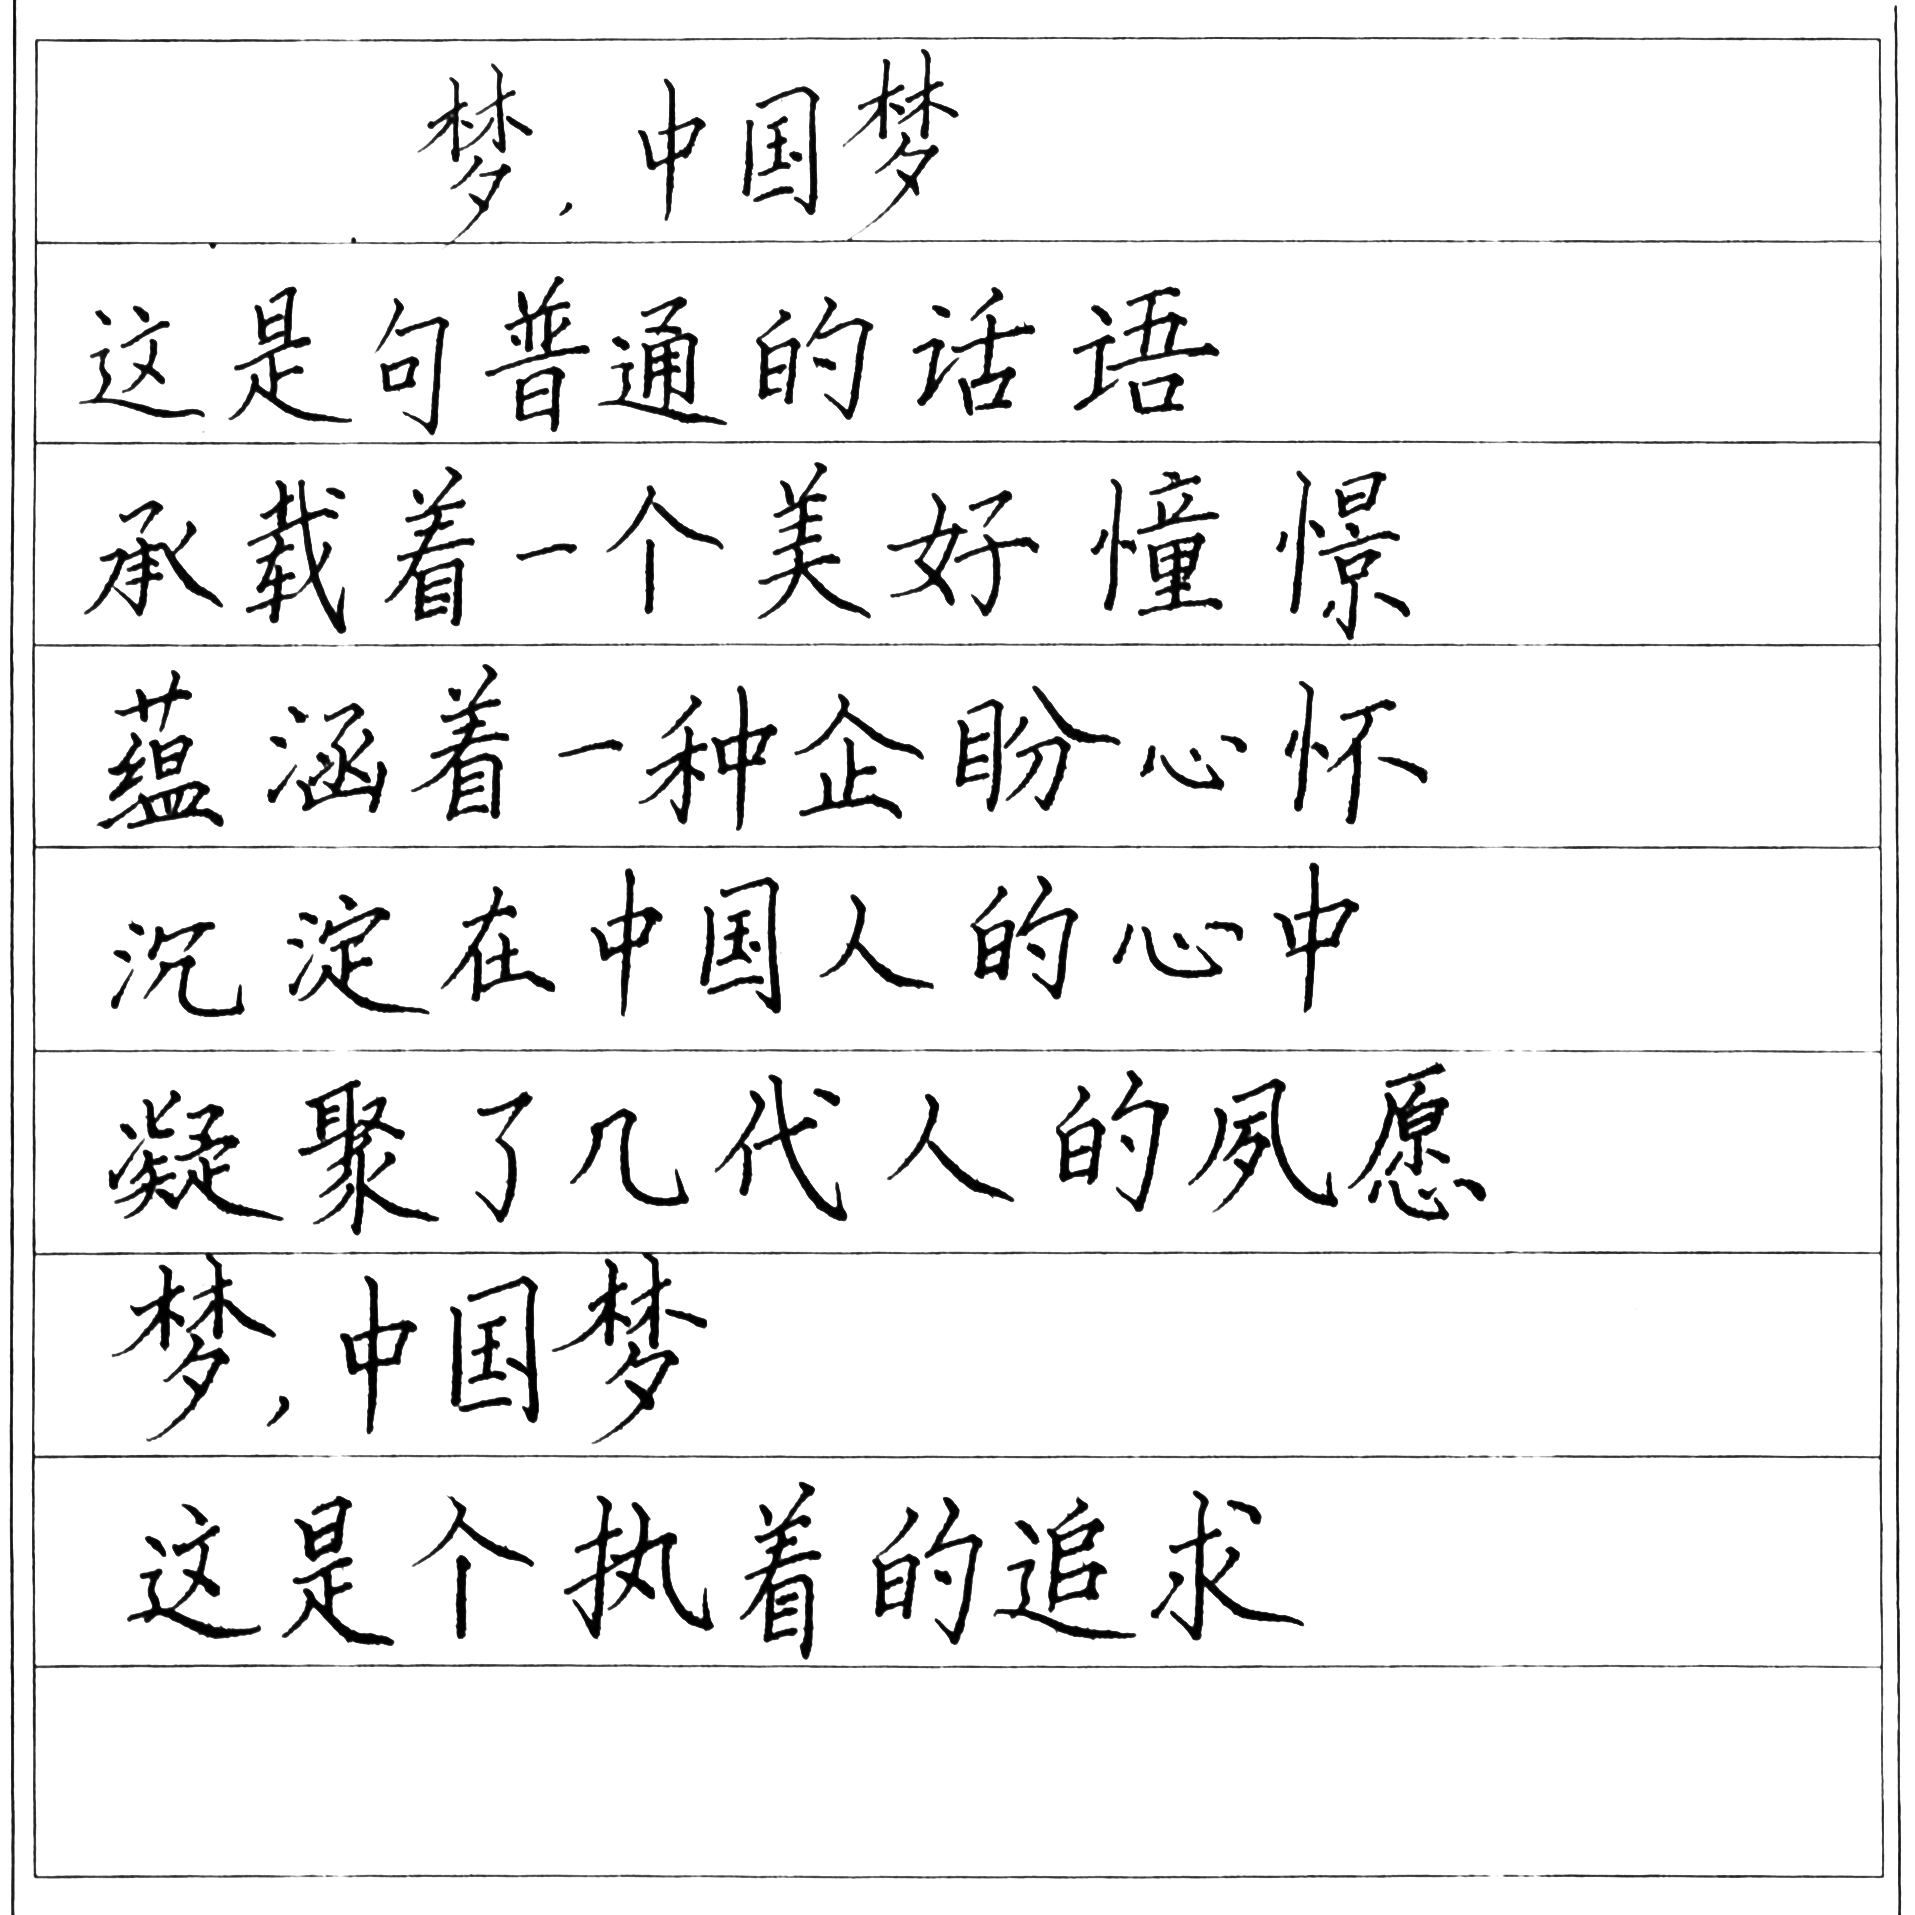 梦，中国梦
这是句普通的话语
承载着一个美好憧憬
蕴涵着一种企盼心怀
沉淀在中国人的心中
凝聚了几代人的夙愿
梦，中国梦
这是个执着的追求